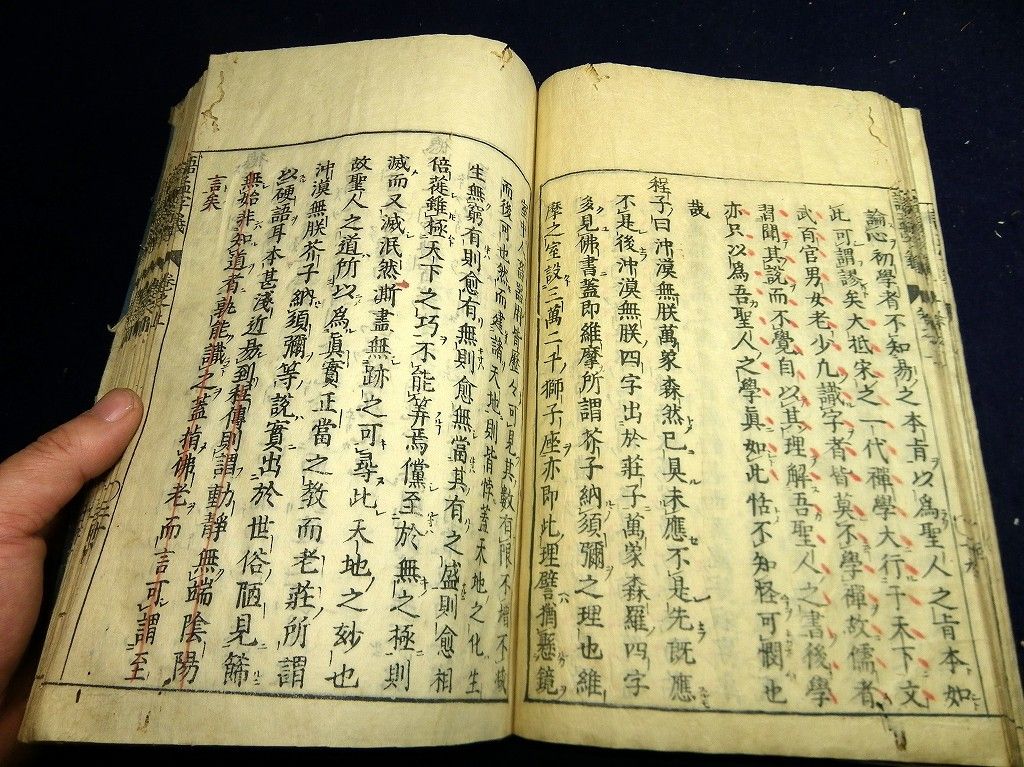 論心初學者不知易之本旨以爲聖人之旨本如
此可謂謬矣大抵宋之一代禪學大行于天下文
武百官男女老少凡識字者皆莫不學禪故儒者
習聞其說而不覺自以其理解吾聖人之書後學
亦只以爲吾聖人之學眞如此恬不知怪可憫也
哉
程子曰沖漠無朕萬象森然已具未應不是先既應
不是後沖漠無朕四字出於莊子萬象森羅四字
多見佛書蓋即維摩所謂芥子納須彌之理也維
摩之室設三萬二千獅子座亦即此理譬猶懸鏡
而後可也然而建諸天地則皆悖蓋天地之化生
生無窮有則愈有無則愈無當其有之盛則愈相
倍蓰雖極天下之巧不能筭焉儻至於無之極則
滅而又滅泯然澌盡無跡之可尋此天地之妙也
故聖人之道所以爲眞實正當之教而老莊所謂
沖漠無朕芥子納須彌等說實出於世俗陋見篩
以硬語耳本甚淺近易到程傳則謂動靜無端陰陽
無始非知道者孰能識之蓋指佛老而言可謂至
言矣
語孟字義 卷之上